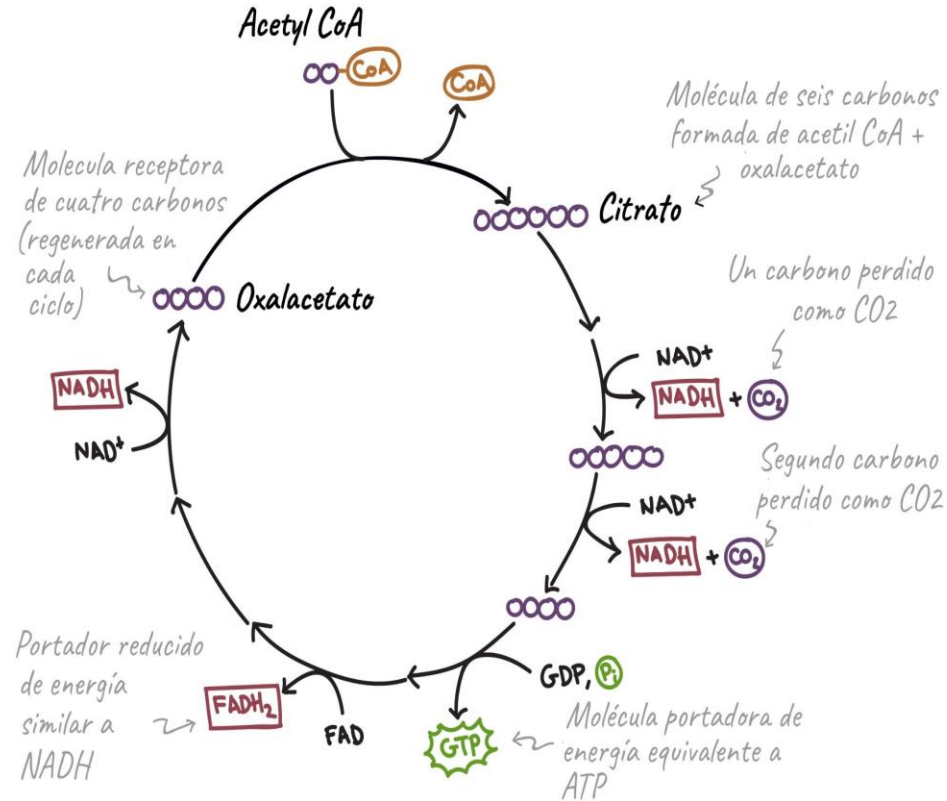 Acetyl CoA
CoA
CoA
Molécula de seis carbonos
formada de acetil CoA +
oxalacetato
Citrato
Molecula receptora
de cuatro carbonos
(regenerada en
cada
ciclo)
Oxalacetato
Un carbono perdido
como CO2
NAD+
NADH + CO₂
Segundo carbono
perdido como CO2
NAD+
NADH + CO₂
GDP, Pi
GTP
Molécula portadora de
energía equivalente a
ATP
FAD
FADH₂
Portador reducido
de energía
similar a
NADH
NAD+
NADH